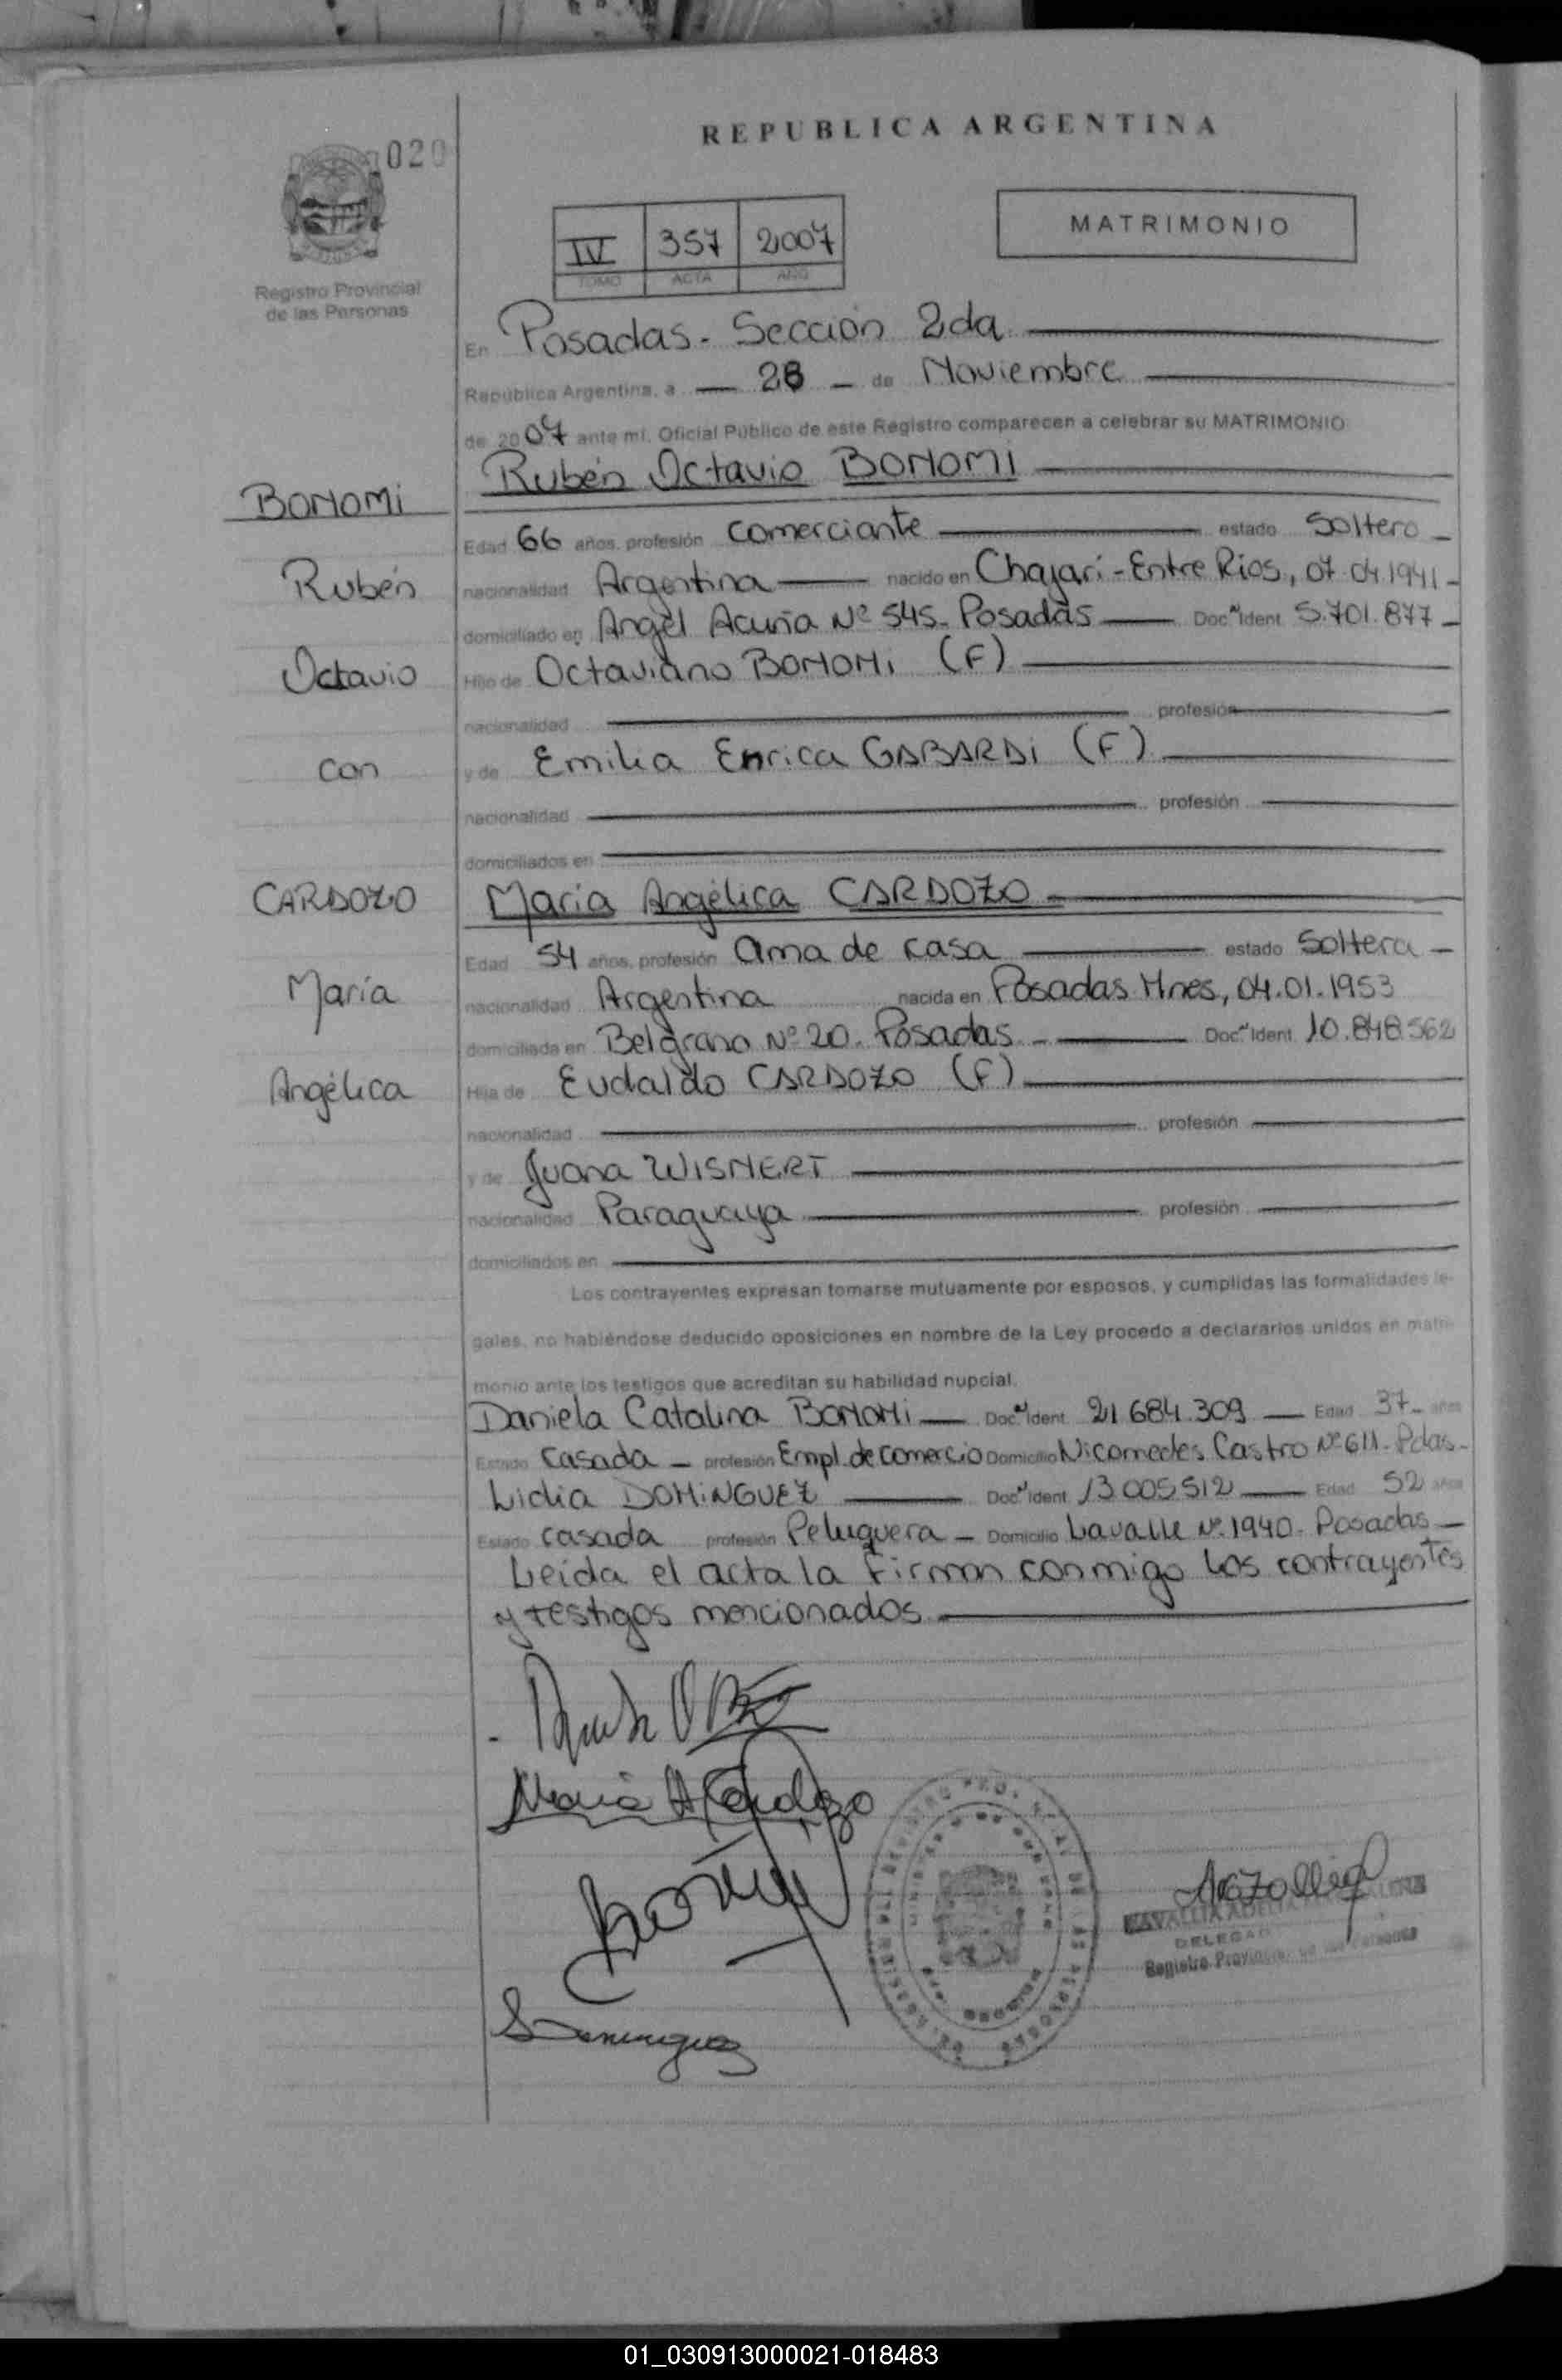 020
REPUBLICA ARGENTINA
MATRIMONIO
IV 357 2007
TOMO ACTA AÑO
Registro Provincial
de las Personas
En Posadas. Sección 2da
República Argentina, a 28 de Noviembre
de 2007 ante mí, Oficial Público de este Registro comparecen a celebrar su MATRIMONIO
Rubén Octavio BONOMI
BONOMI
Edad 66 años, profesión comerciante estado Soltero
Rubén
nacionalidad Argentina nacido en Chajarí-Entre Rios, 07.04.1941
domiciliado en Angel Acuña Nº 545. Posadas Doc. Ident 5.701.877
Octavio
Hijo de Octaviano BONOMI (F)
nacionalidad profesión
con
y de Emilia Enrica GABARDI (F)
nacionalidad profesión
domiciliados en
CARDOZO
María Angélica CARDOZO
Edad 54 años, profesión ama de casa estado Soltera
María
nacionalidad Argentina nacida en Posadas Mnes, 04.01.1953
domiciliada en Belgrano Nº 20. Posadas Doc. Ident 10.848.562
Angélica
Hija de Eudaldo CARDOZO (F)
nacionalidad profesión
y de Juana WISNERT
nacionalidad Paraguaya profesión
domiciliados en
Los contrayentes expresan tomarse mutuamente por esposos, y cumplidas las formalidades le-
gales, no habiéndose deducido oposiciones en nombre de la Ley procedo a declararlos unidos en matri-
monio ante los testigos que acreditan su habilidad nupcial.
Daniela Catalina BONOMI Doc. Ident 21.684.309 Edad 37 años
Estado casada profesión Empl. de comercio Domicilio Nicomedes Castro Nº 611. Pdas.
Lidia DOMINGUEZ Doc. Ident 13.005.512 Edad 52 años
Estado casada profesión Peluquera Domicilio Lavalle Nº 1940. Posadas
Leida el acta la firman conmigo los contrayentes
y testigos mencionados
María A Cardozo
Dominguez
DELEGAD
Registro Provincial de las Personas
01_030913000021-018483